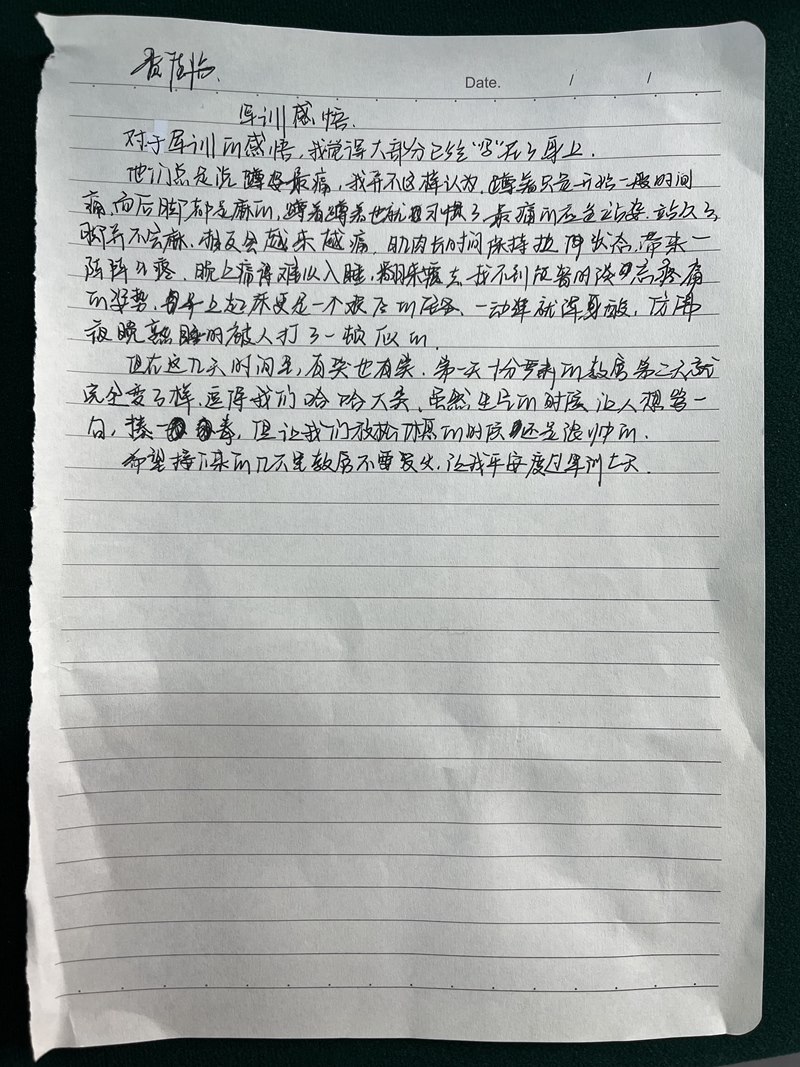 Date. / /
军训感悟.
对于军训的感悟,我觉得大部分已经"写"在了身上.
他们总是说蹲姿最痛,我并不这样认为,蹲姿只是开始一段时间
痛,而后脚都是麻的,蹲着蹲着也就习惯了.最痛的应是站姿.站久了,
脚并不会麻.相反会越来越痛,肌肉长时间保持拉伸状态,带来一
阵阵的疼,晚上痛得难以入睡,翻来覆去,找不到
的姿势,早上起床更是一个艰巨的任务,一动弹就浑身酸,仿佛
夜晚熟睡时被人打了一顿似的.
但在这几天时间里,有哭也有笑.第一天十分严肃的教官第二天就
完全变了样.逗得我们哈哈大笑.虽然生气的时候让人想骂一
句,揍一拳,但让我们放松的时候还是很帅的.
希望接下来的几天里教官不要发火,让我平安度过军训七天.